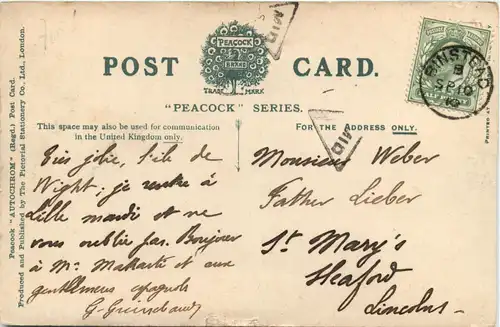 POST CARD.
PEACOCK
BRAND
TRADE MARK
MID
"PEACOCK" SERIES.
BINSTEAD
B
SP 10
This space may also be used for communication
in the United Kingdom only.
FOR THE ADDRESS ONLY.
MID
Très jolie, l'île de
Wight; je rentre à
Lille mardi et ne
vous oublie pas. Bonjour
à Mr. et aux
gentlemens espagnols
G.
Monsieur Weber
Father Lieber
St Mary's
Sleaford
Lincolns.
Peacock "AUTOCHROM" (Regd.) Post Card.
Produced and Published by The Pictorial Stationery Co., Ltd., London.
Printed at